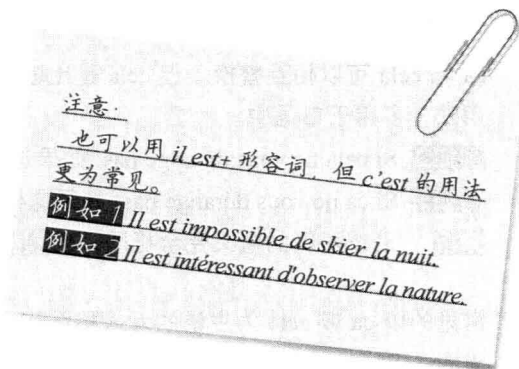 注意：
也可以用 il est+ 形容词，但 c'est 的用法
更为常见。
例如 1 Il est impossible de skier la nuit.
例如 2 Il est intéressant d'observer la nature.